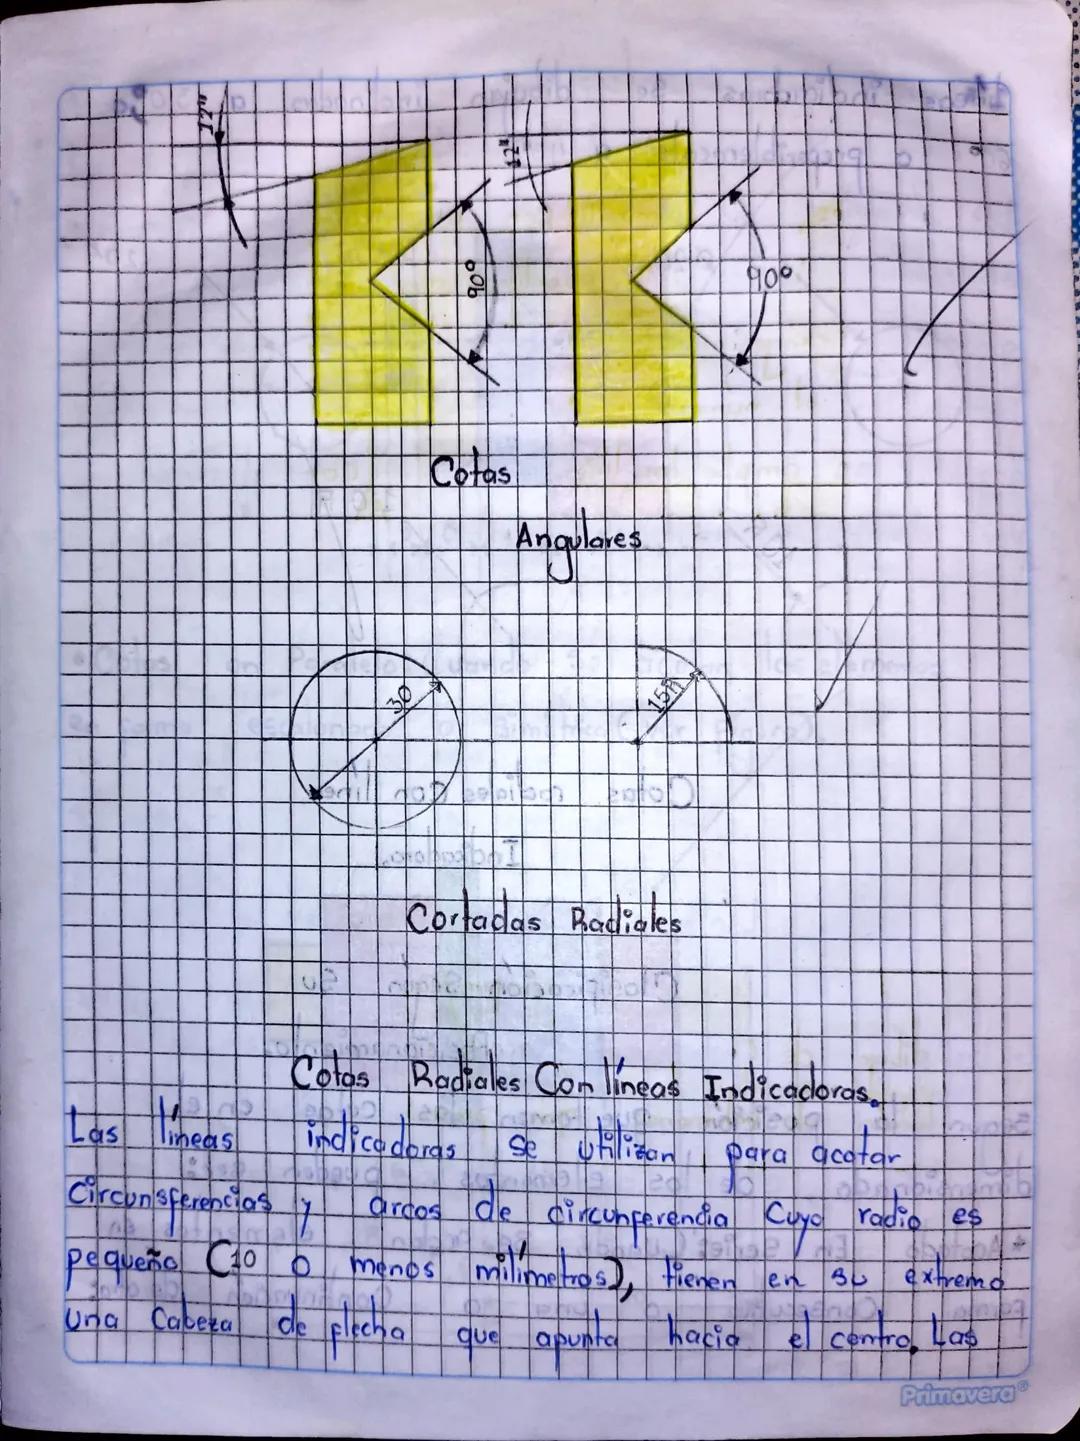 12"
12"
90°
90°
Cotas
Angulares
30
15R
Cortadas Radiales
Cotas Radiales Con líneas Indicadoras.
Las líneas indicadoras se utilizan para acotar
Circunsferencias y arcos de circunferencia Cuyo radio es
pequeño (10 o menos milímetros), tienen en su extremo
una Cabeza de flecha que apunta hacia el centro. Las
Primavera®